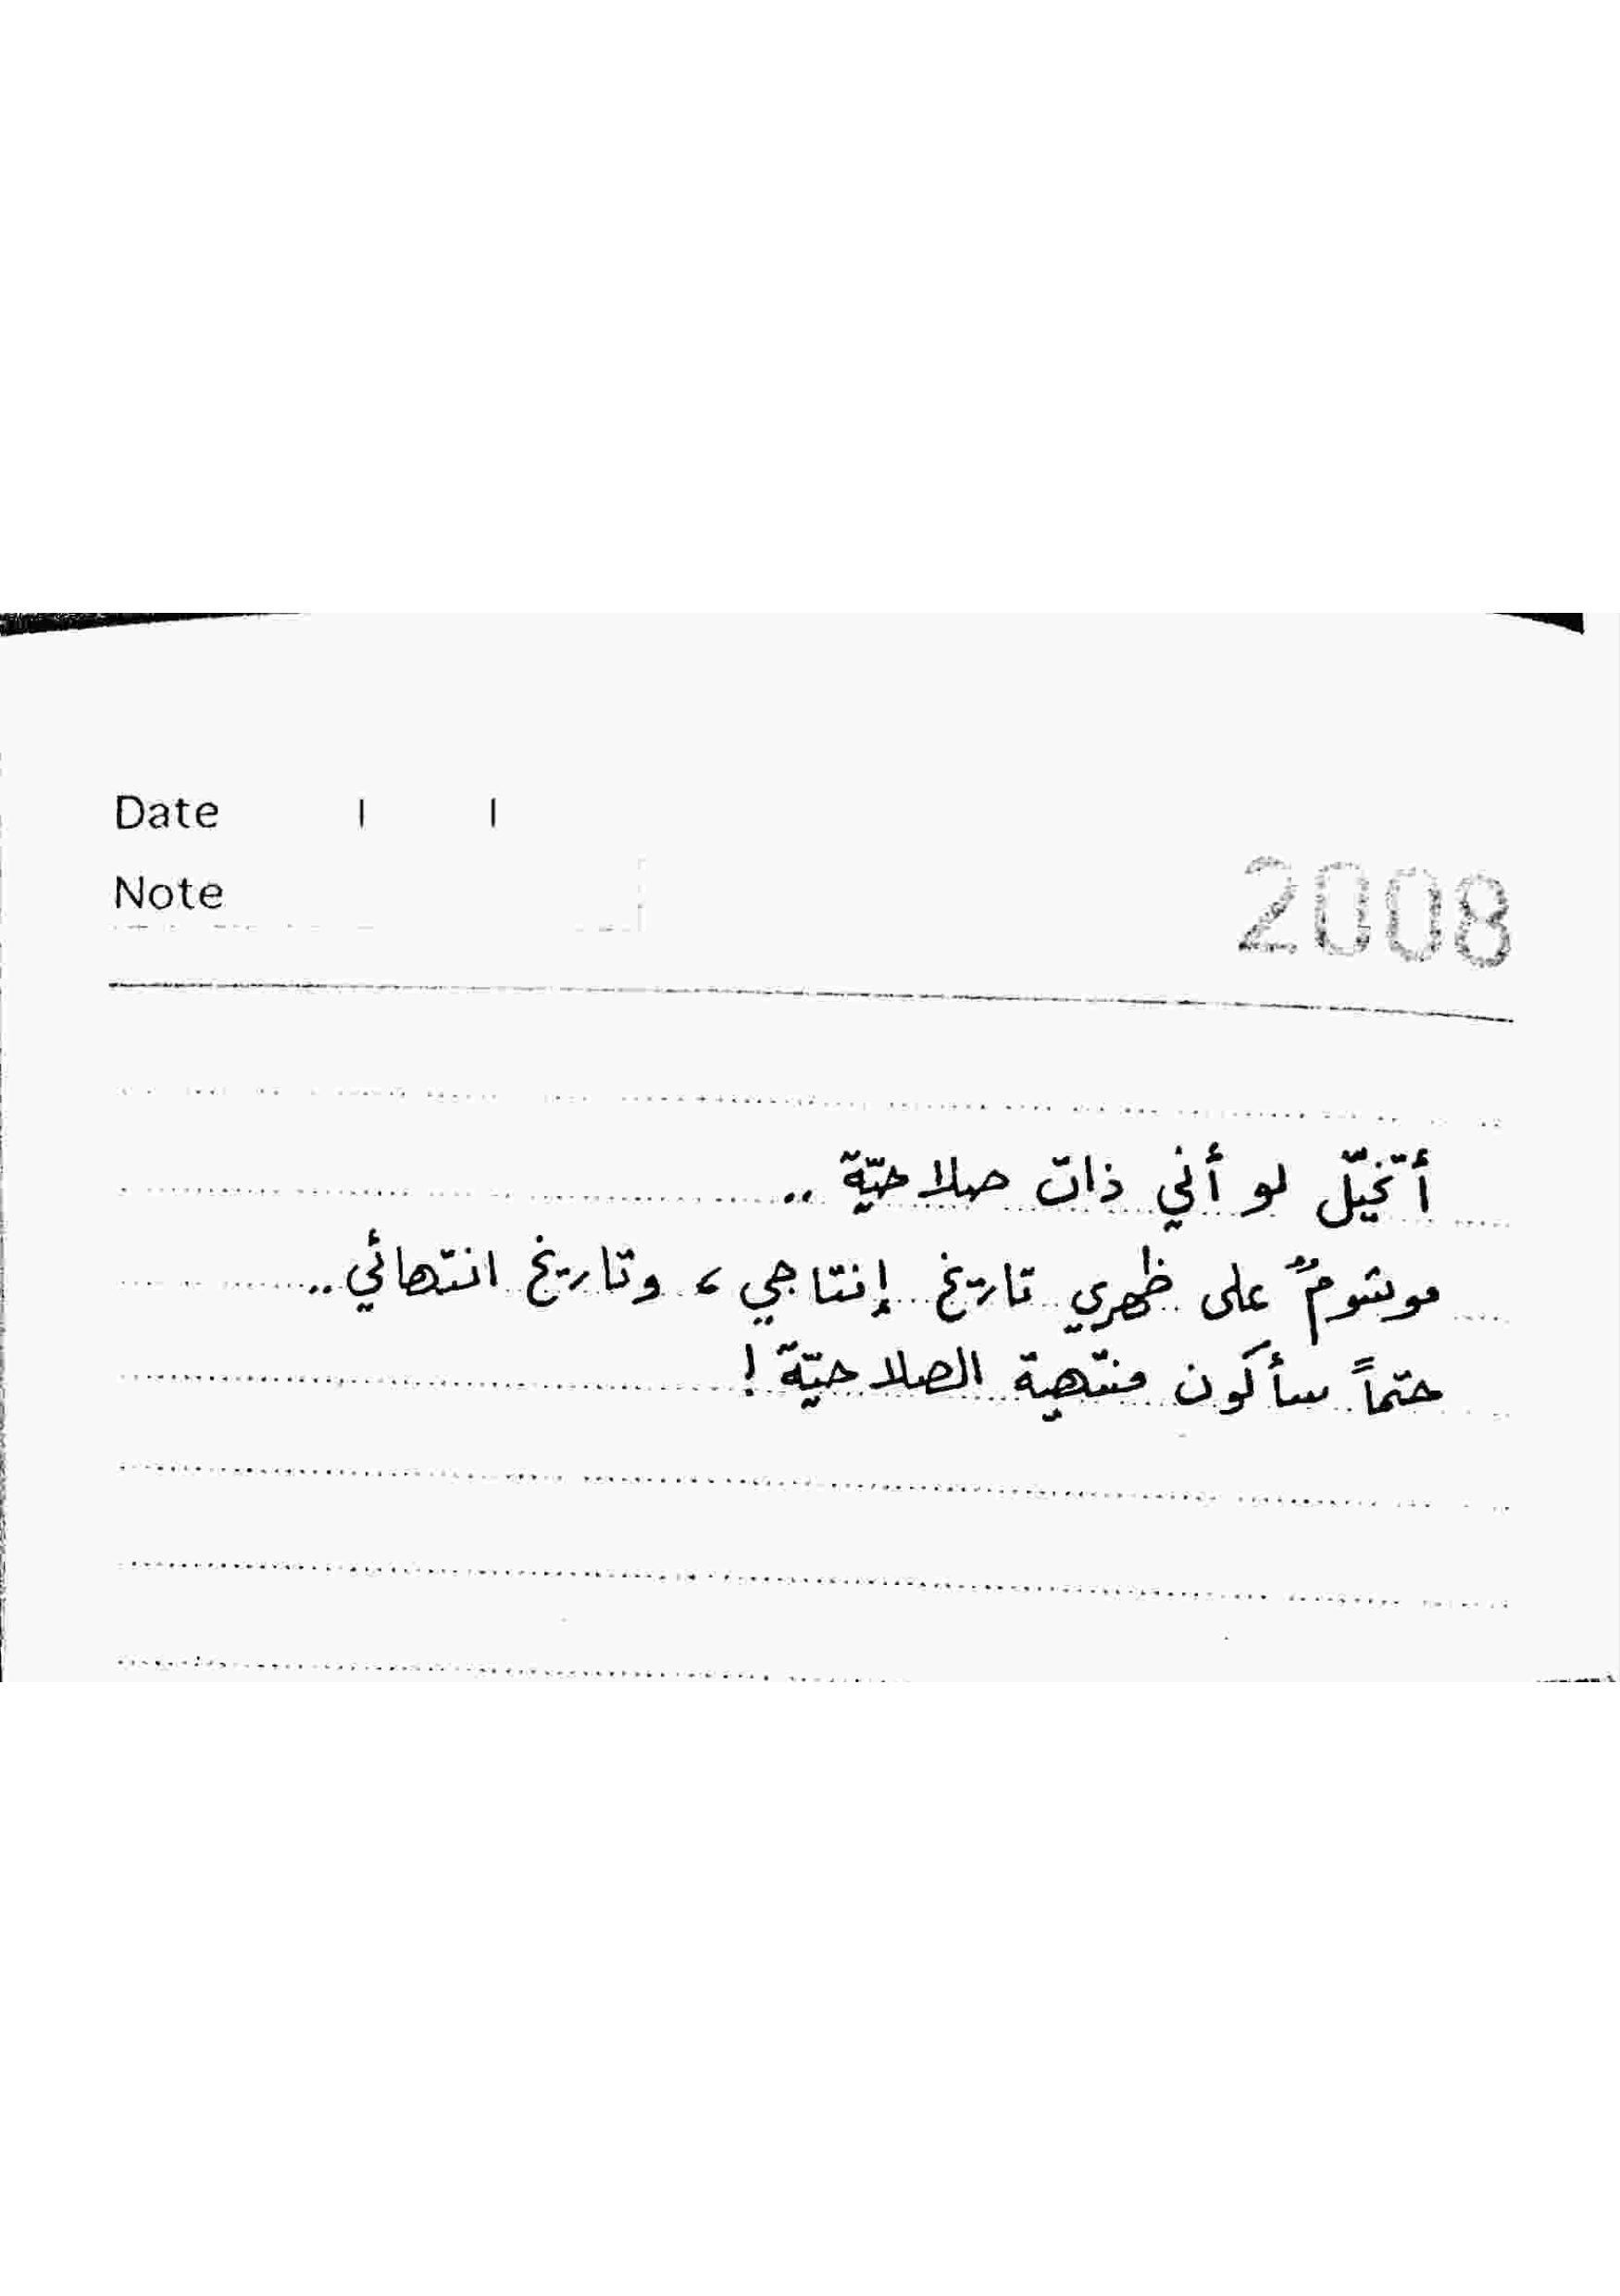 Date / /
Note
2008
أتخيّل لو أني ذات صلاحيّة ..
موشومٌ على ظهري تاريخ إنتاجي، وتاريخ انتهائي..
حتماً سأكون منتهية الصلاحيّة !